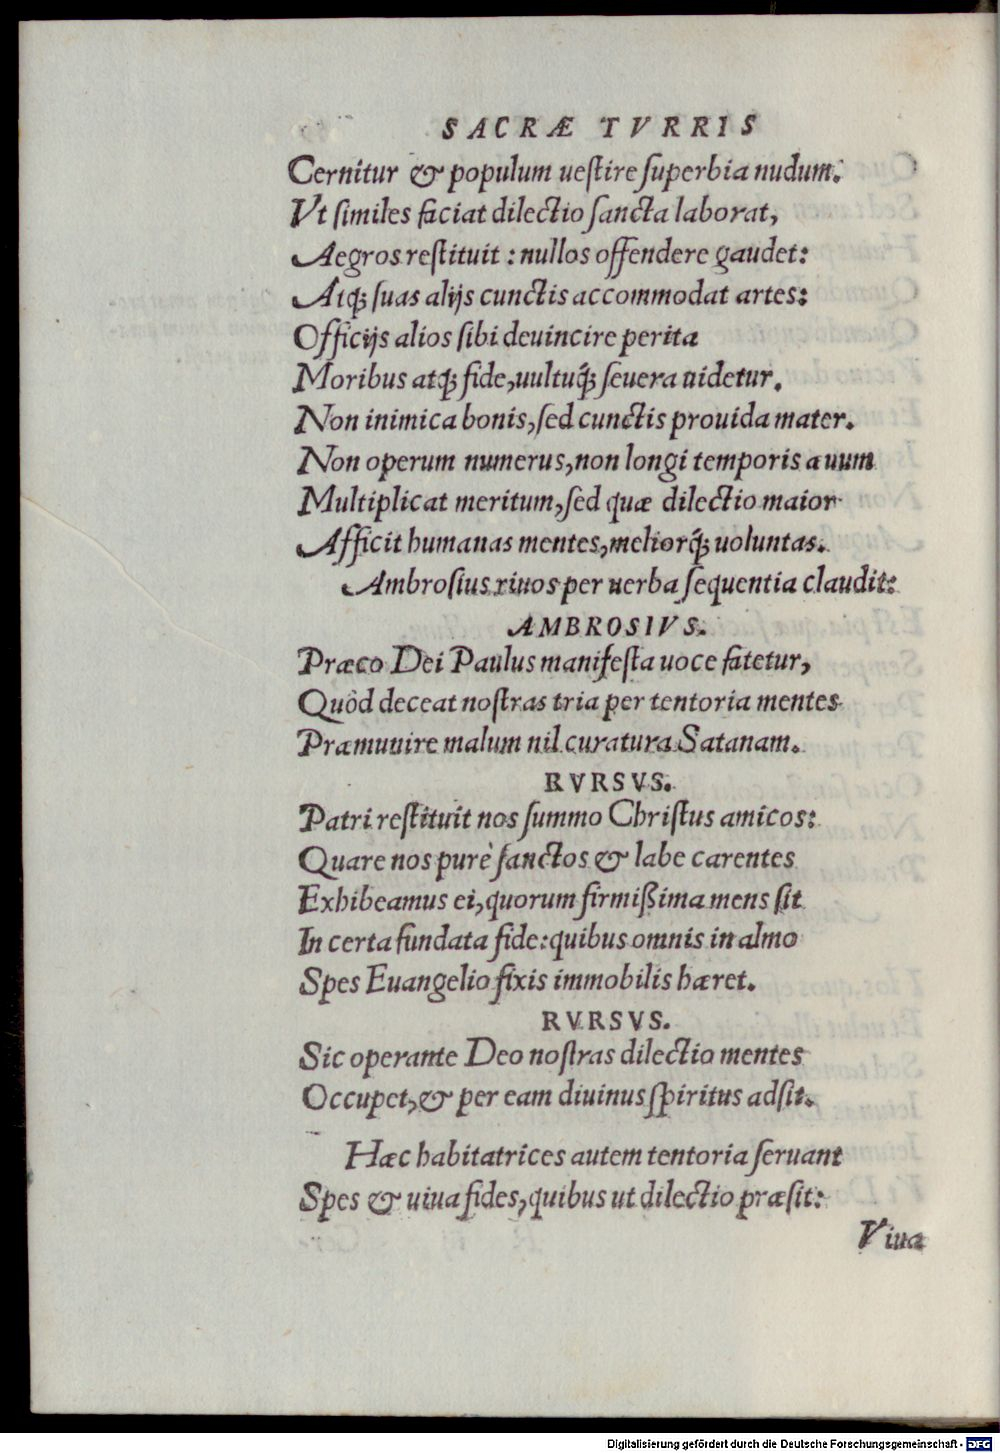 SACRÆ TVRRIS
Cernitur & populum ueſtire ſuperbia nudum.
Vt ſimiles faciat dilectio ſancta laborat,
Aegros reſtituit : nullos offendere gaudet:
Atq́; ſuas alijs cunctis accommodat artes:
Officijs alios ſibi deuincire perita
Moribus atq́; fide, uultuq́; ſeuera uidetur.
Non inimica bonis, ſed cunctis prouida mater.
Non operum numerus, non longi temporis auum
Multiplicat meritum, ſed quæ dilectio maior
Afficit humanas mentes, meliorq́; uoluntas.
Ambroſius riuos per uerba ſequentia claudit:
AMBROSIVS.
Præco Dei Paulus manifeſta uoce fatetur,
Quòd deceat noſtras tria per tentoria mentes
Præmunire malum nil curatura Satanam.
RVRSVS.
Patri reſtituit nos ſummo Chriſtus amicos:
Quare nos purè ſanctos & labe carentes
Exhibeamus ei, quorum firmißima mens ſit
In certa fundata fide: quibus omnis in almo
Spes Euangelio fixis immobilis hæret.
RVRSVS.
Sic operante Deo noſtras dilectio mentes
Occupet, & per eam diuinus ſpiritus adſit.
Hæc habitatrices autem tentoria ſeruant
Spes & uiua fides, quibus ut dilectio præſit:
Viua
Digitalisierung gefördert durch die Deutsche Forschungsgemeinschaft - DFG